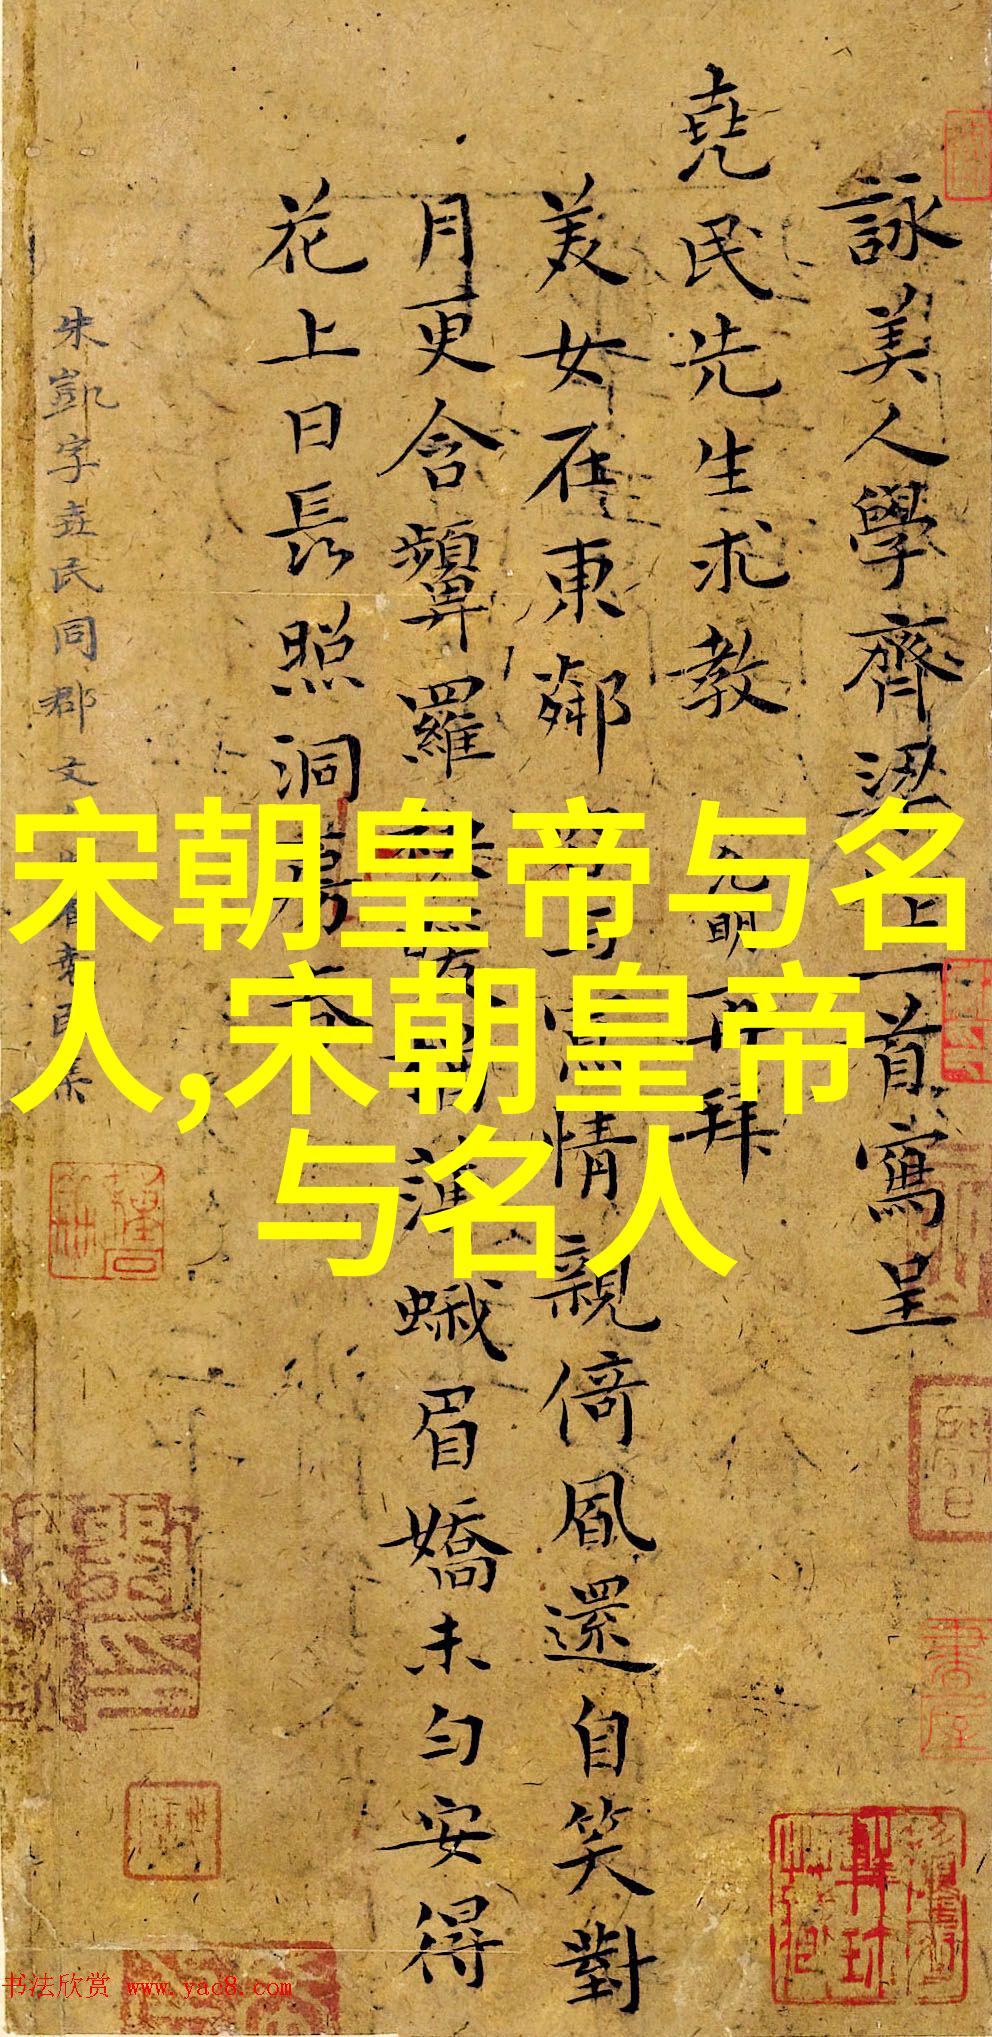 詠美人學齊梁上一首寫呈
堯民先生求教 允明再拜
美女在東鄰 情親倚風還自笑對
月更含顰羅 薄蛾眉嬌未勻安得
花上日長照洞房春
朱凱字堯民同郡文
宋朝皇帝与名
人,宋朝皇帝
与名人
书法欣赏 www.yac8.com